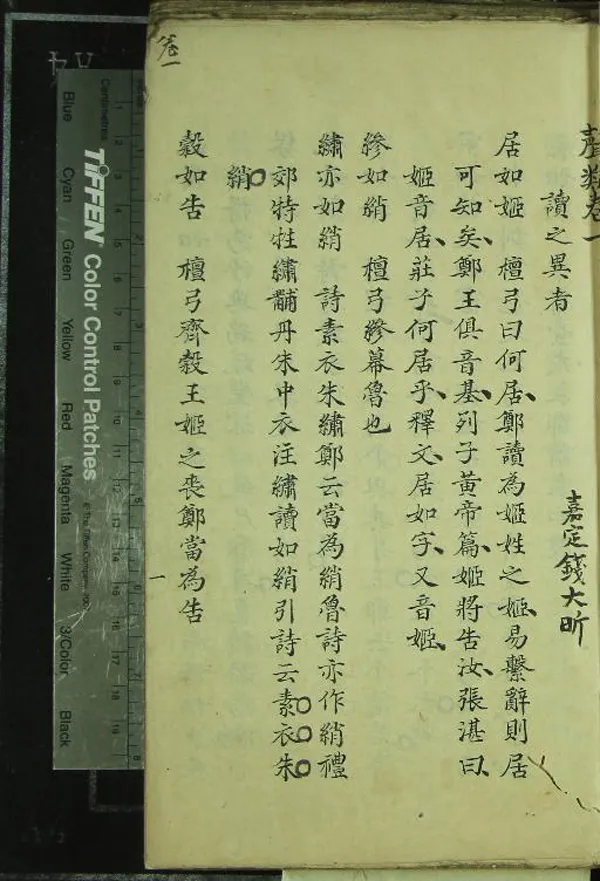 聲類卷一
嘉定錢大昕
讀之異者
居如姬 檀弓曰何居鄭讀為姬姓之姬易繫辭則居
可知矣鄭王俱音基列子黃帝篇姬將告汝張湛曰
姬音居莊子何居乎釋文居如字又音姬
縿如綃 檀弓縿幕魯也
繡亦如綃 詩素衣朱繡鄭云當為綃魯詩亦作綃禮
郊特牲繡黼丹朱中衣注繡讀如綃引詩云素衣朱
綃
穀如告 檀弓齊穀王姬之喪鄭當為告
一
卷一
Centimetres
TIFFEN Color Control Patches
© The Tiffen Company, 2007
Blue Cyan Green Yellow Red Magenta White 3/Color Black